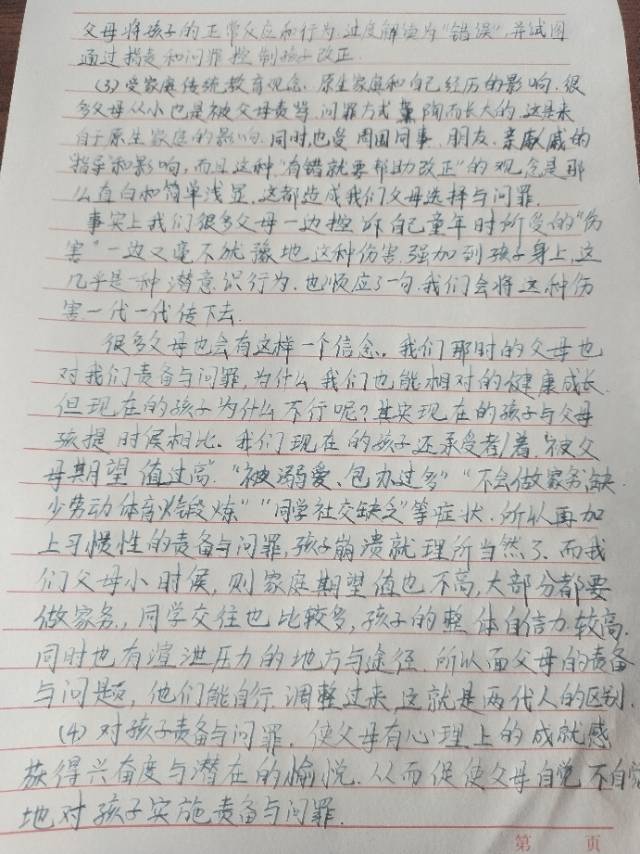 父母将孩子的正常反应和行为,过度解读为"错误",并试图
通过指责和问罪控制孩子改正.
(3)受家庭传统教育观念、原生家庭和自己经历的影响.很
多父母从小也是被父母责骂、问罪方式熏陶而长大的,这是来
自于原生家庭的影响.同时,也受周围同事、朋友、亲戚的
指导和影响,而且这种"有错就要帮助改正"的观念是那
么直白和简单浅显.这都造成我们父母选择与问罪.
事实上我们很多父母一边控诉自己童年时所受的"伤
害"一边又毫不犹豫地这种伤害,强加到孩子身上,这
几乎是一种潜意识行为.也顺应了一句.我们会将这种伤
害一代一代传下去.
很多父母也会有这样一个信念.我们那时的父母也
对我们责备与问罪,为什么我们也能相对的健康成长.
但现在的孩子为什么不行呢?其实现在的孩子与父母
孩提时候相比.我们现在的孩子还承受者/着."被父
母期望值过高""被溺爱、包办过多""不会做家务,缺
少劳动体育锻炼""同学社交缺乏"等症状.所以再加
上习惯性的责备与问罪,孩子崩溃就理所当然了.而我
们父母小时候,则家庭期望值也不高,大部分都要
做家务,同学交往也比较多,孩子的整体自信力较高.
同时也有渲泄压力的地方与途径.所以面父母的责备
与问题,他们能自行调整过来.这就是两代人的区别.
(4)对孩子责备与问罪.使父母有心理上的成就感
获得兴奋度与潜在的愉悦.从而促使父母自觉不自觉
地对孩子实施责备与问罪.
第 页